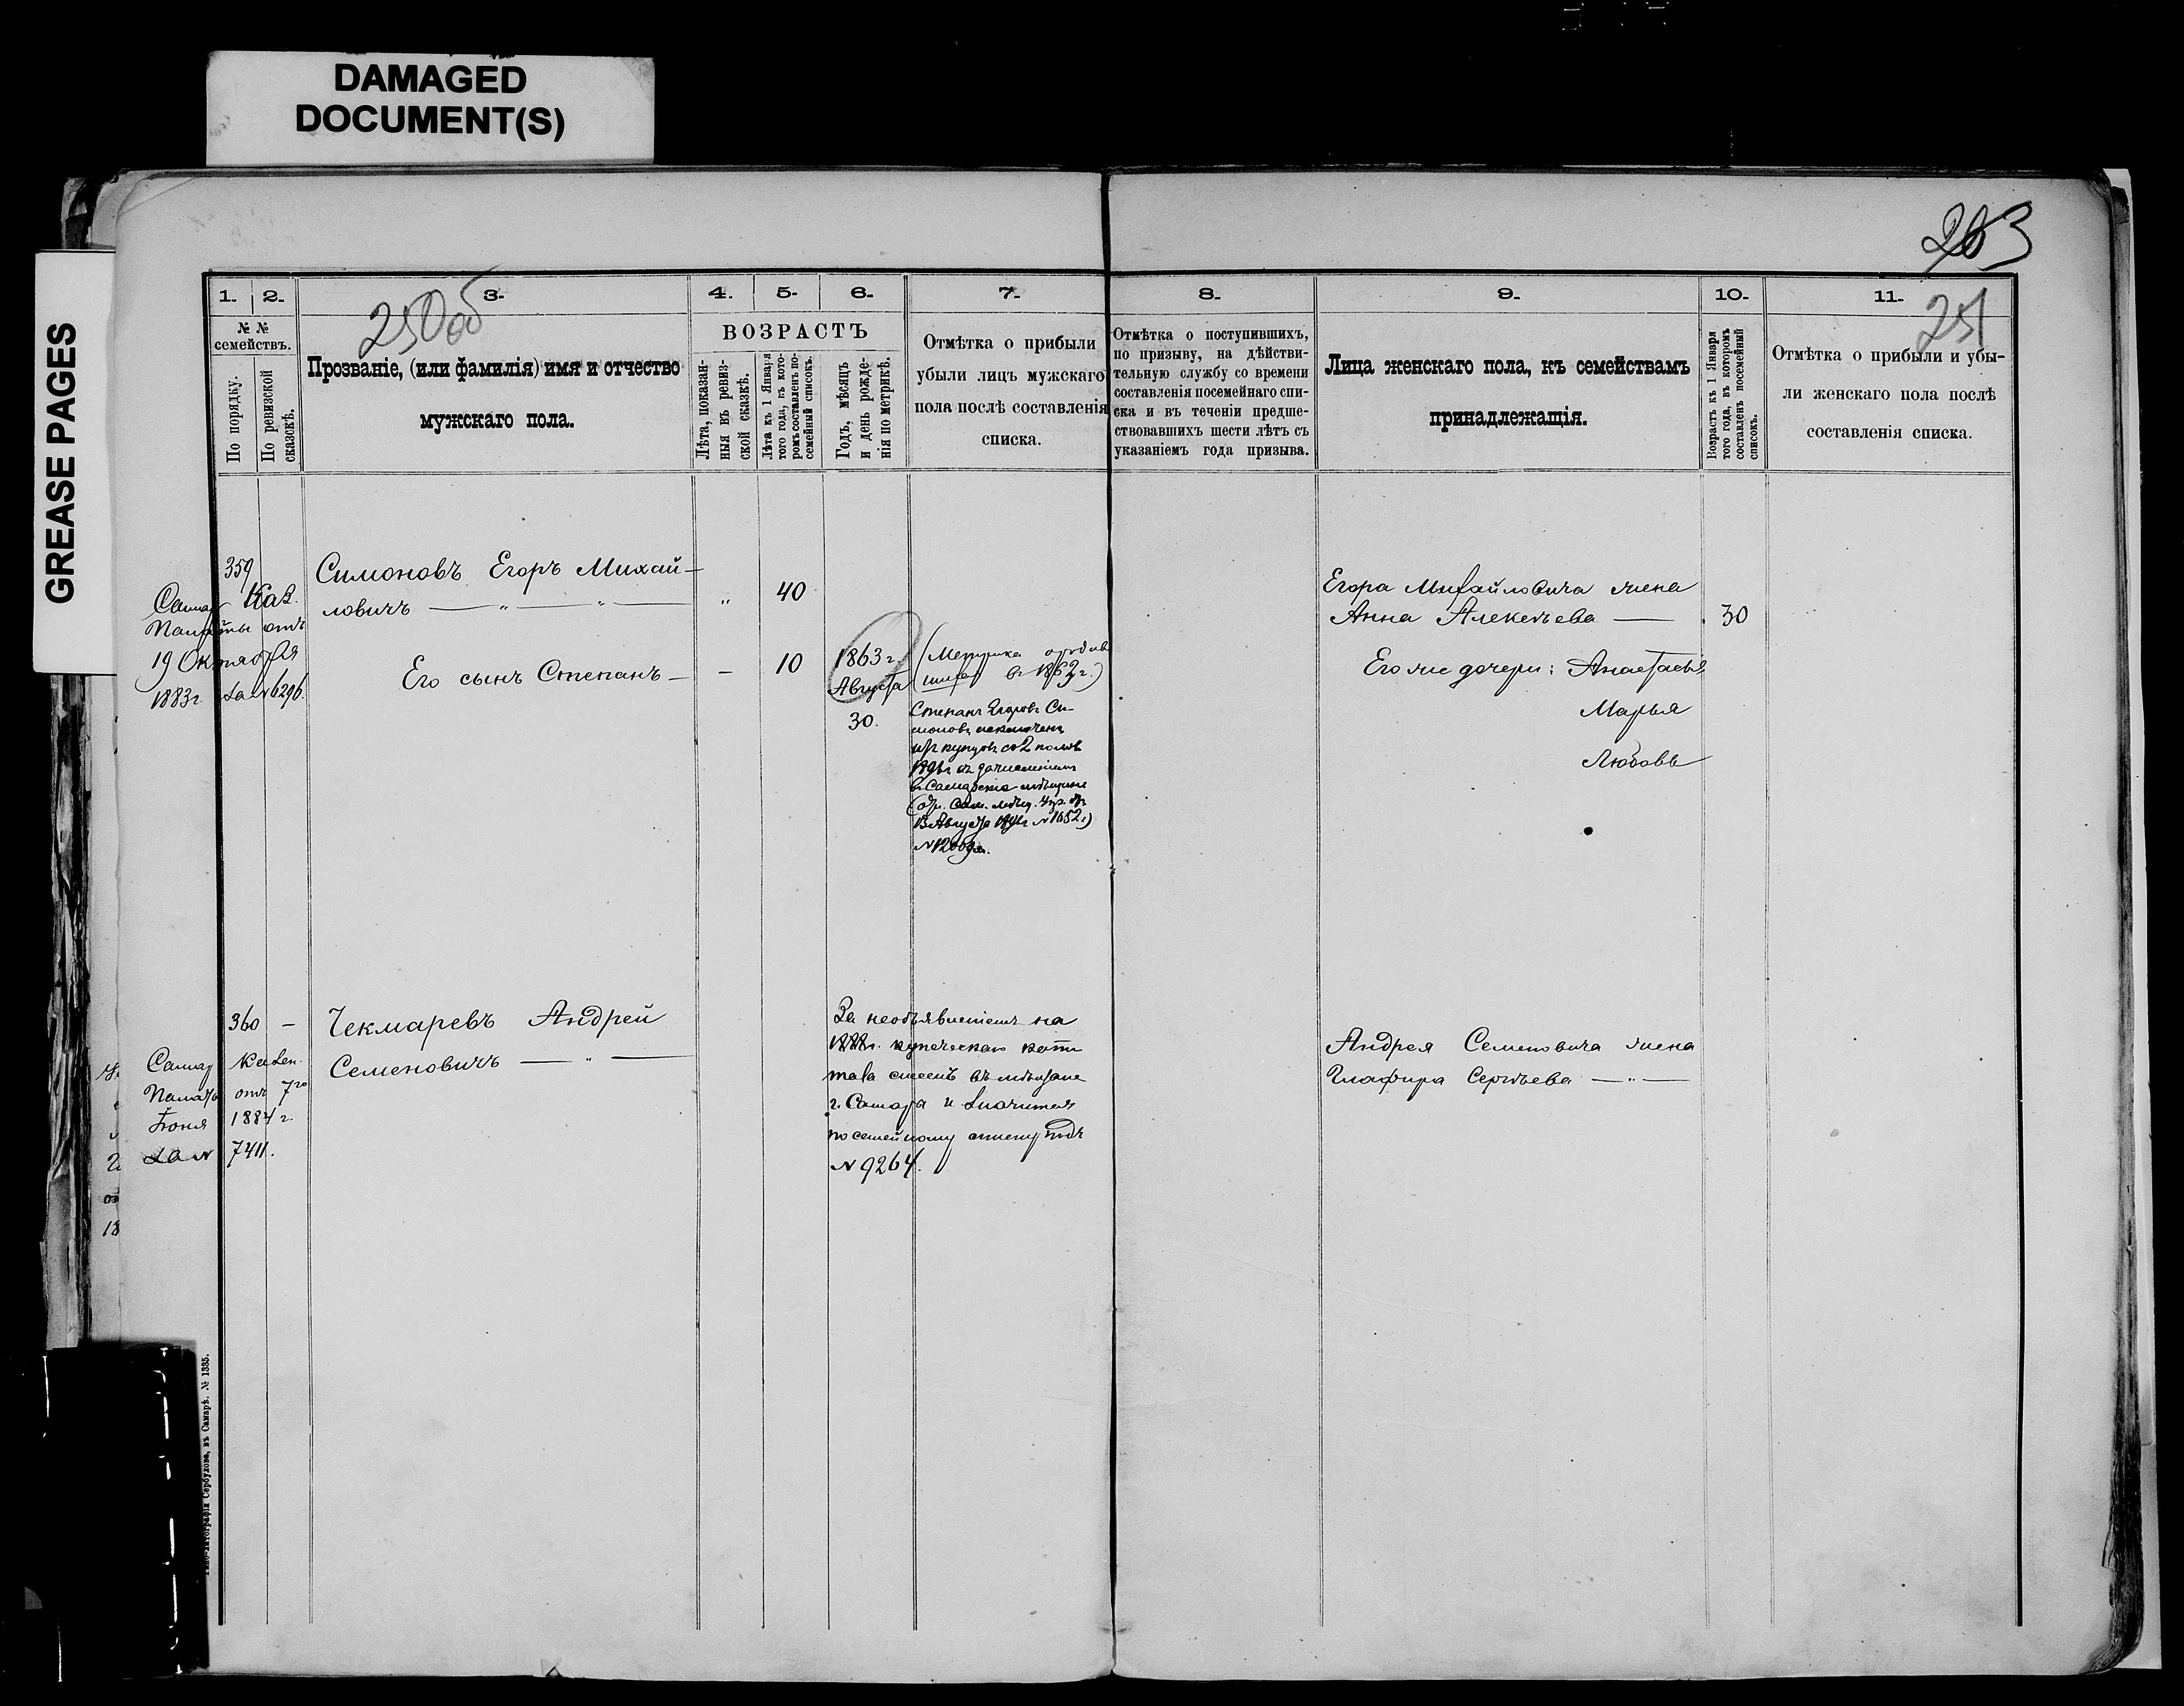 DAMAGED
DOCUMENT(S)
GREASE PAGES
263
1.
2.
3.
4.
5.
6.
7.
8.
9.
10.
11.
250об
251
№ №
семействъ.
По порядку.
По ревизской
сказскѣ.
Прозваніе, (или фамилія) имя и отчество
мужскаго пола.
ВОЗРАСТЪ
Лѣта, показан-
ныя въ ревиз-
ской сказкѣ.
Лѣта къ 1 Января
того года, въ кото-
ромъ составленъ по-
семейный списокъ.
Годъ, мѣсяцъ
и день рожде-
нія по метрикѣ.
Отмѣтка о прибыли
убыли лицъ мужскаго
пола послѣ составленія
списка.
Отмѣтка о поступившихъ,
по призыву, на дѣйстви-
тельную службу со времени
составленія посемейнаго спи-
ска и въ теченіи предше-
ствовавшихъ шести лѣтъ съ
указаніемъ года призыва.
Лица женскаго пола, къ семействамъ
принадлежащія.
Возрастъ къ 1 Января
того года, въ которомъ
составленъ посемейный
списокъ.
Отмѣтка о прибыли и убы-
ли женскаго пола послѣ
составленія списка.
359
Самар Каз.
Палаты отъ
19 Октября
1883г. за № 6296.
Симоновъ Егоръ Михай-
ловичъ — „ — „ — „ 40
Его сынъ Степанъ — – 10
1863 г.
Августа
30.
(Метрика о родив
шихся въ 1863г.)
Степанъ Егоровъ Си-
моновъ исключенъ
изъ купцовъ со 2 полов
съ дачисленіемъ
въ Самарскіе мѣщане
(от. Сам. мѣщ. Упр. от
13 Августа № 1652.)
Егора Михайловича жена
Анна Алексѣева — 30
Его же дочери: Анастасья
Марья
Любовь
360 –
Самар Казен.
Палаты отъ 7го
Іюня 1884 г.
за № 7411.
Чекмаревъ Андрей
Семеновичъ — „ —
За необъявленіемъ на
1888г. купеческаго капи
тала смсенъ въ мѣщане
г. Самара и значится
по семейному списку подъ
№ 9264.
Андрея Семеновича жена
Глафира Сергѣева — „ —
Типо-Литографія Сербулова, въ Самарѣ. № 1335.